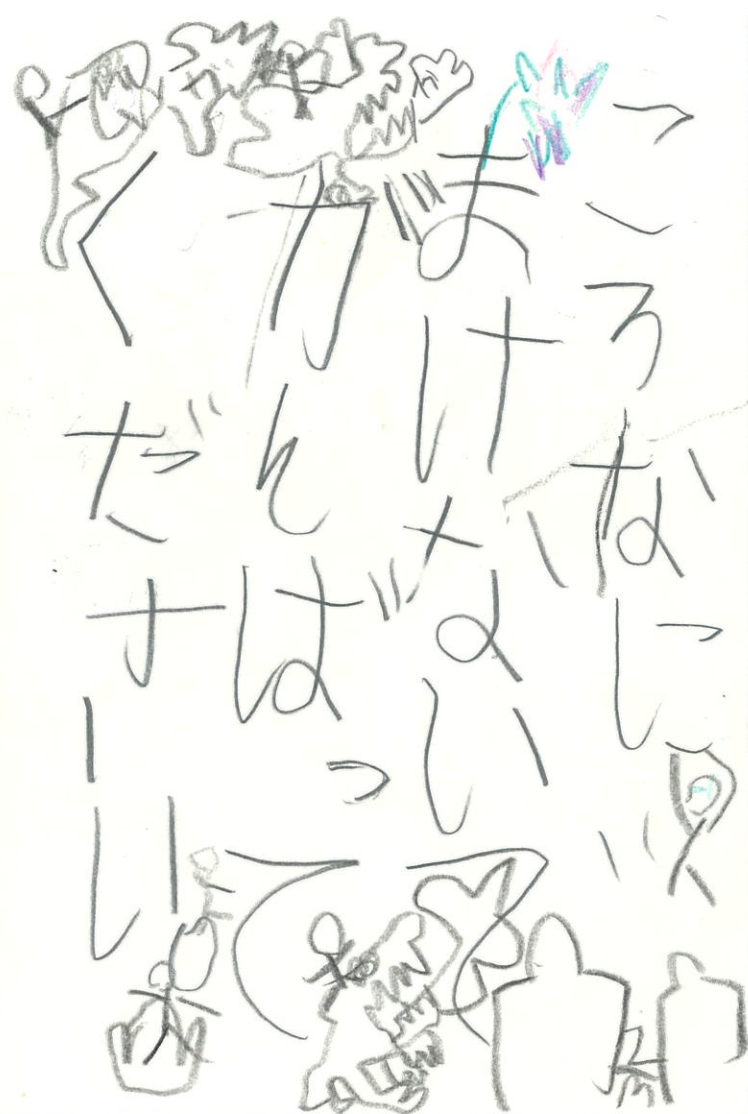 ころなに
まけないで
がんばって
ください